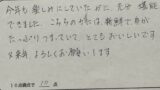 今年も楽しみにしていたがに、充分 堪能
できました。こちらのかには、新鮮で身が
たっぷりつまっていて、とてもおいしいです
又来年よろしくお願いします
10点満点で 10 点